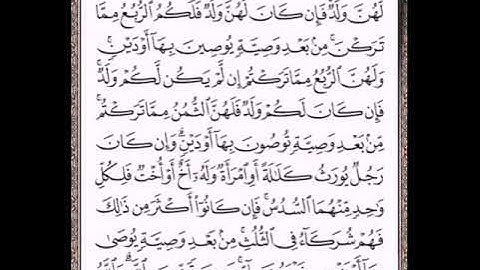 لَهُنَّ وَلَدٌ فَإِن كَانَ لَهُنَّ وَلَدٌ فَلَكُمُ ٱلرُّبُعُ مِمَّا
تَرَكْنَ ۚ مِنۢ بَعْدِ وَصِيَّةٍ يُوصِينَ بِهَآ أَوْ دَيْنٍ ۚ
وَلَهُنَّ ٱلرُّبُعُ مِمَّا تَرَكْتُمْ إِن لَّمْ يَكُن لَّكُمْ وَلَدٌ ۚ
فَإِن كَانَ لَكُمْ وَلَدٌ فَلَهُنَّ ٱلثُّمُنُ مِمَّا تَرَكْتُم ۚ
مِّنۢ بَعْدِ وَصِيَّةٍ تُوصُونَ بِهَآ أَوْ دَيْنٍ ۗ وَإِن كَانَ
رَجُلٌ يُورَثُ كَلَٰلَةً أَوِ ٱمْرَأَةٌ وَلَهُۥٓ أَخٌ أَوْ أُخْتٌ فَلِكُلِّ
وَٰحِدٍ مِّنْهُمَا ٱلسُّدُسُ ۚ فَإِن كَانُوٓا۟ أَكْثَرَ مِن ذَٰلِكَ
فَهُمْ شُرَكَآءُ فِى ٱلثُّلُثِ ۚ مِنۢ بَعْدِ وَصِيَّةٍ يُوصَىٰ